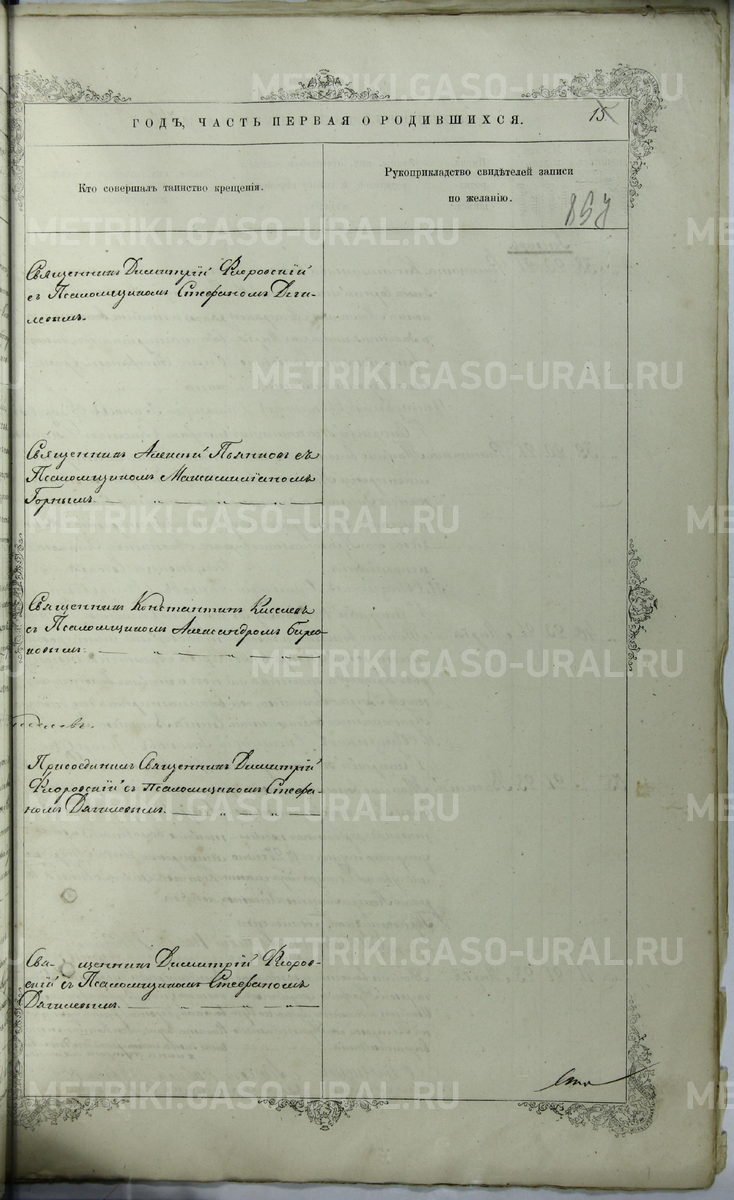 15
ГОДЪ, ЧАСТЬ ПЕРВАЯ О РОДИВШИХСЯ.
Кто совершалъ таинство крещенія.
Рукоприкладство свидѣтелей записи
по желанію.
Священникъ Димитрій Флоровскій
съ Псаломщикомъ Стефаномъ Дяги-
левымъ.
Священникъ Алексій Пьянковъ съ
Псаломщикомъ Максимиліаномъ
Горнымъ.
Священникъ Константинъ Киселевъ
съ Псаломщикомъ Александромъ
Присоединилъ Священникъ Димитрій
Флоровскій съ Псаломщикомъ Стефа-
номъ Дягилевымъ.
Священникъ Димитрій Флоров-
скій съ Псаломщикомъ Стефаномъ
Дягилевымъ.
METRIKI.GASO-URAL.RU